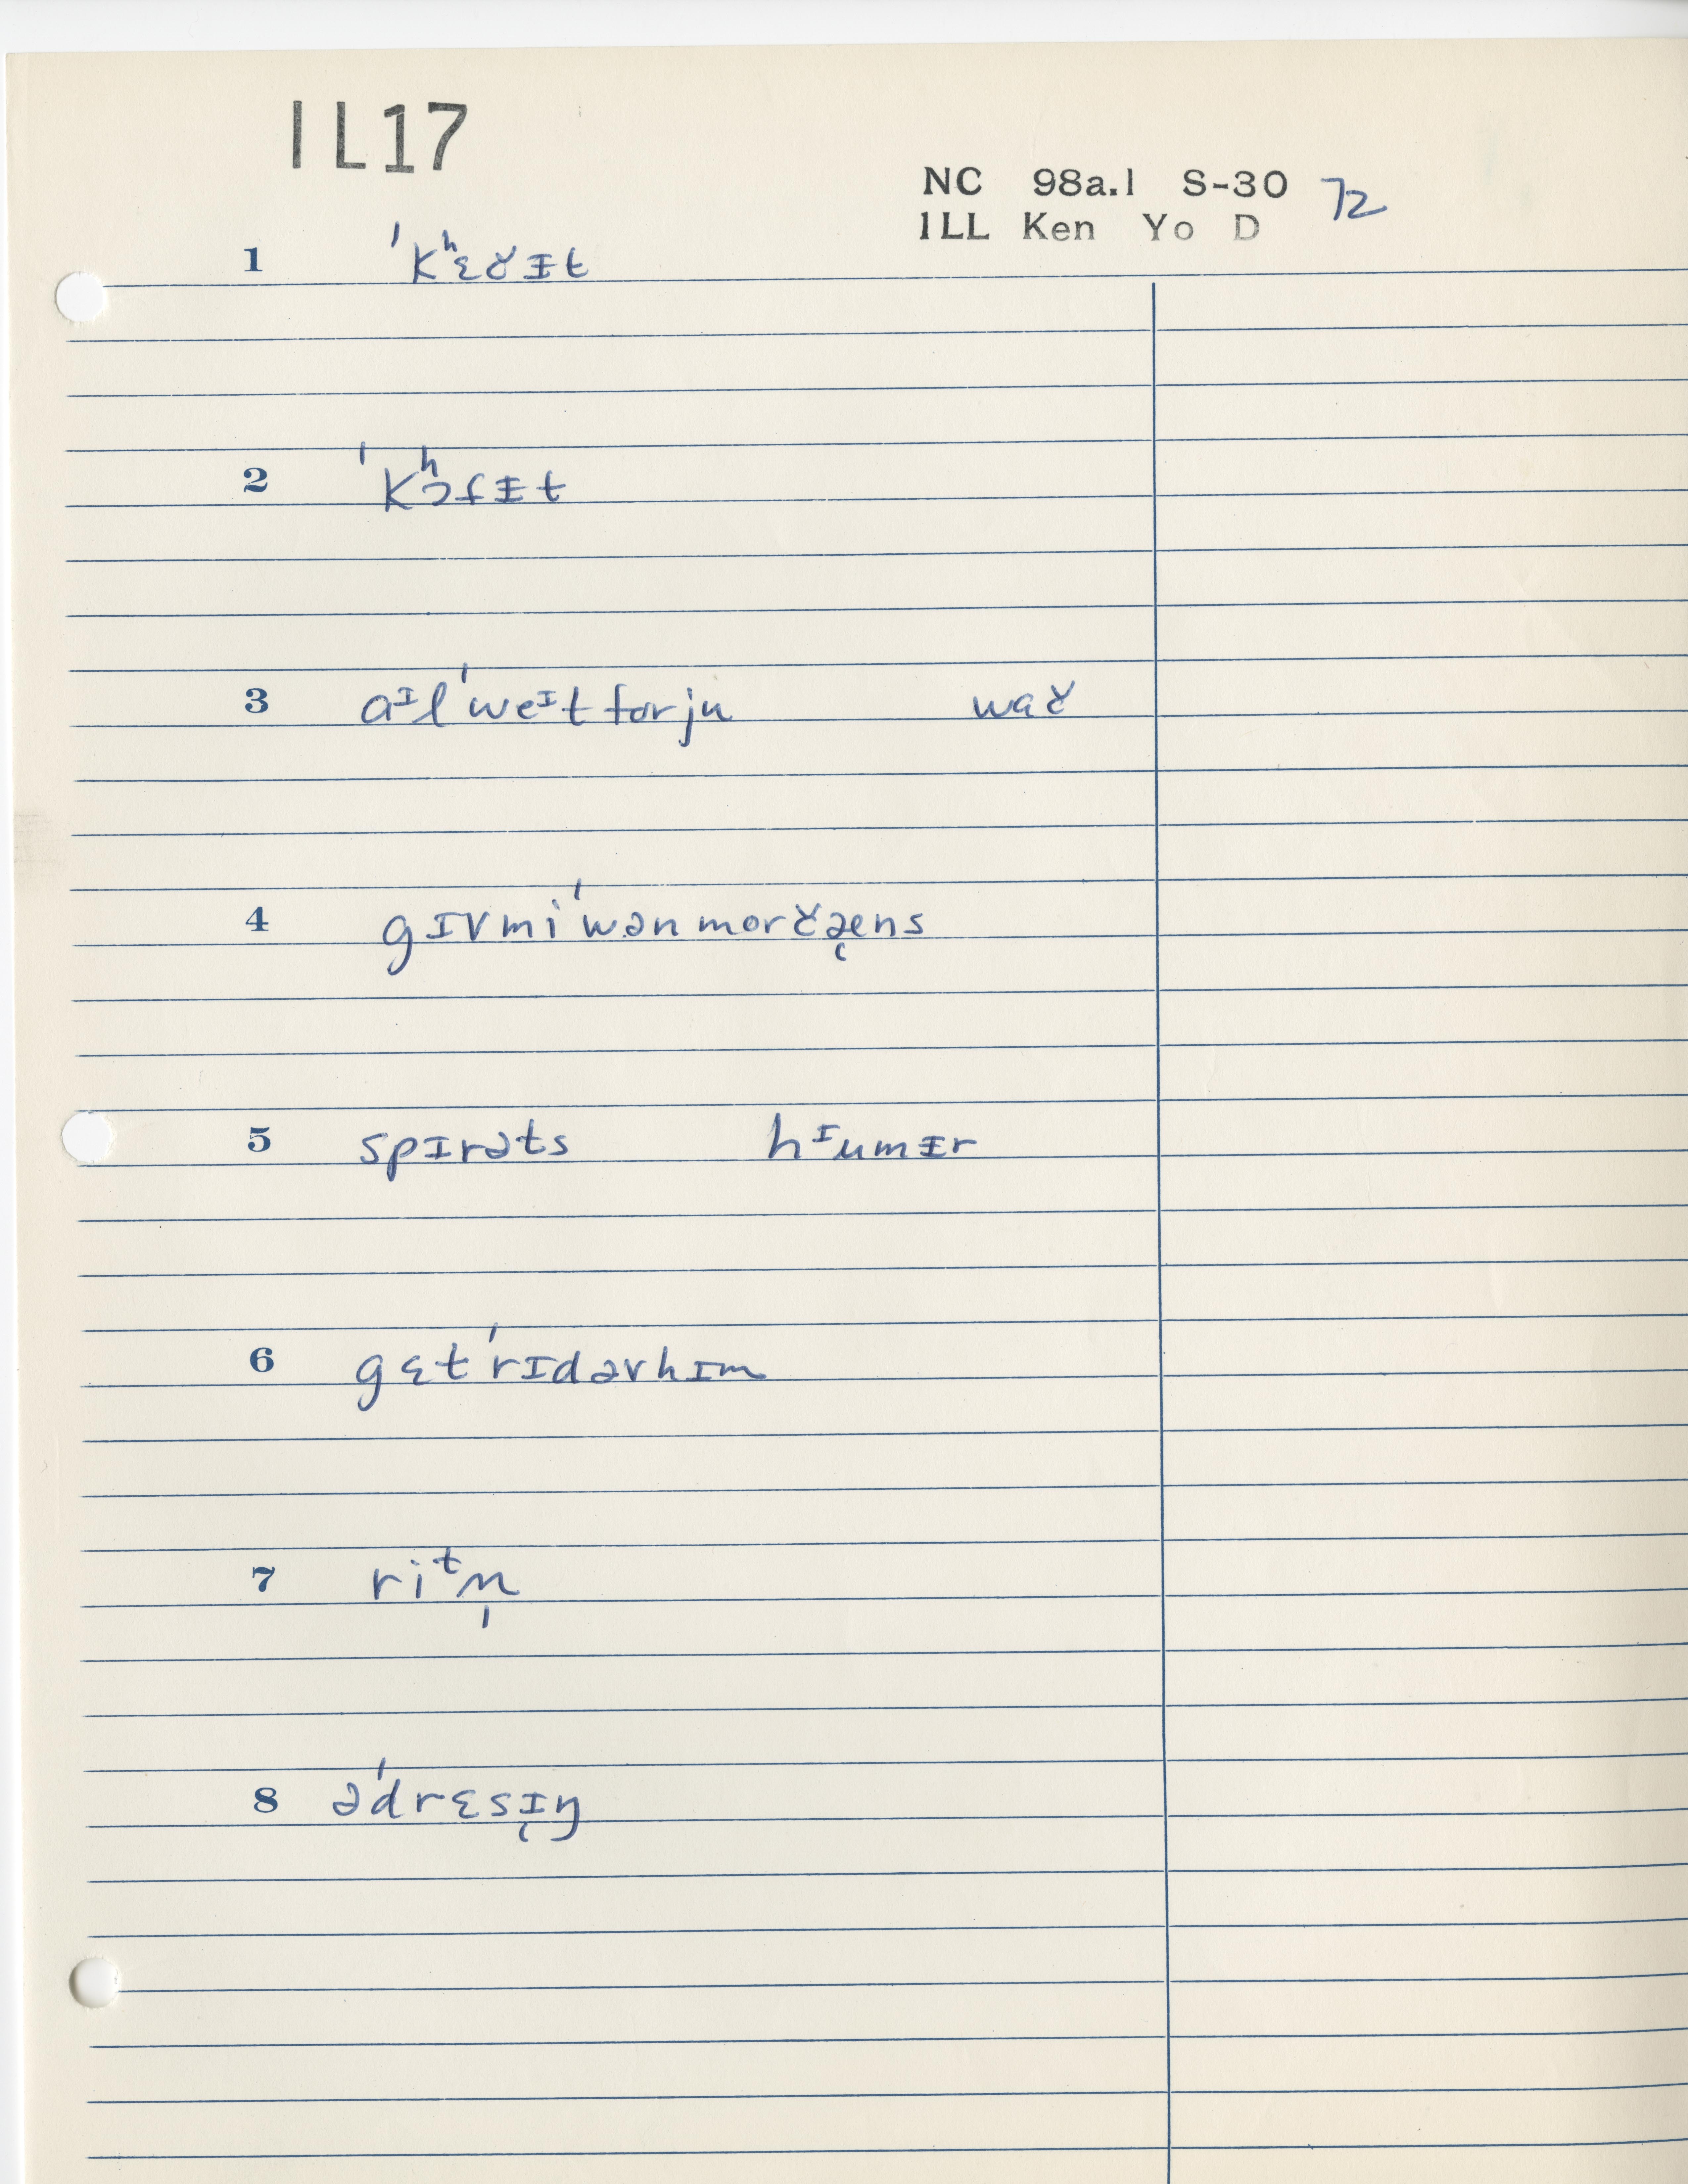 IL17
NC 98a.1 S-30 72
ILL Ken Yo D
1 ˈkʰɛɤᵻt
2 ˈkʰɔfᵻt
3 aᴵlˈweᴵt for ju waɤ
4 gɪvmiˈwən mor ɤæ̨ens
5 spɪrəts hᴵumᵻr
6 gɛtˈrɪdəvhɪm
7 riᵗn̩
8 əˈdrɛsɪ̨ŋ